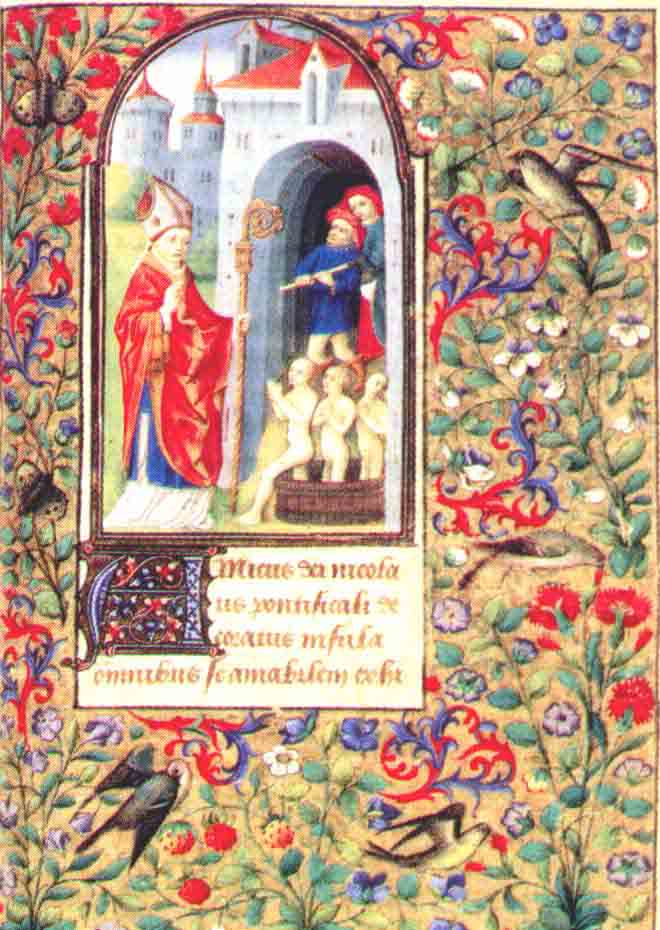 AMicus dei nicola
us pontificali de
coratus infula
omnibus se amabilem exhi